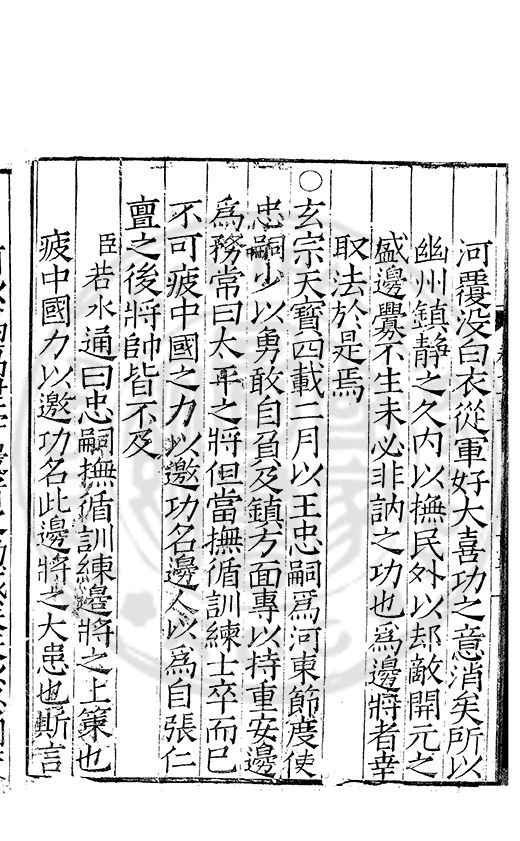 河覆没白衣從軍好大喜功之意消矣所以
幽州鎮静之久内以撫民外以却敵開元之
盛邊釁不生未必非訥之功也爲邊將者幸
取法於是焉
○
玄宗天寶四載二月以王忠嗣爲河東節度使
忠嗣少以勇敢自負及鎮方面專以持重安邊
爲務常曰太平之將但當撫循訓練士卒而已
不可疲中國之力以邀功名邊人以爲自張仁
亶之後將帥皆不及
臣若水通曰忠嗣撫循訓練邊將之上策也
疲中國力以邀功名此邊將之大患也斯言